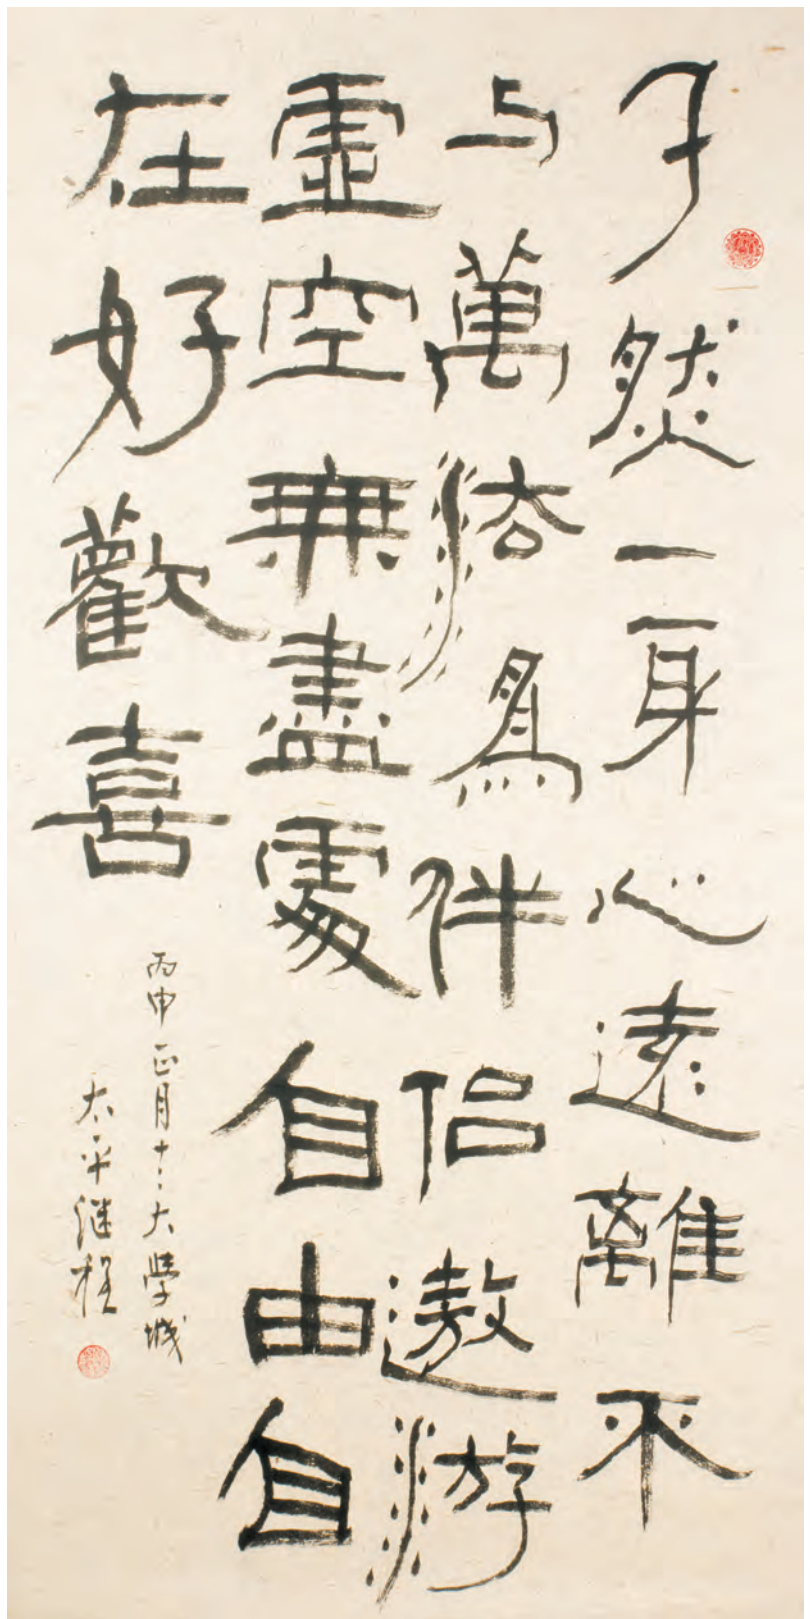 孑然一身心遠離不
与萬法為伴侶遨游
虛空無盡處自由自
在好歡喜
丙申正月十二大學城
太平继程